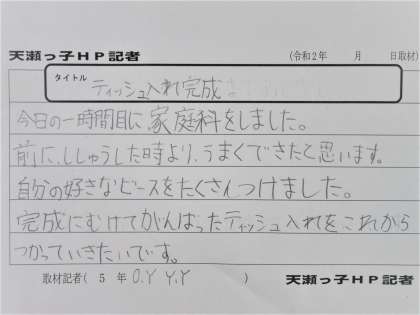 天瀬っ子HP記者 (令和2年 月 日取材)
タイトル ティッシュ入れ完成
今日の一時間目に家庭科をしました。
前に、ししゅうした時より、うまくできたと思います。
自分の好きなビーズをたくさんつけました。
完成にむけてがんばったティッシュ入れをこれから
つかっていきたいです。
取材記者( 5 年 O.Y Y.Y ) 天瀬っ子HP記者